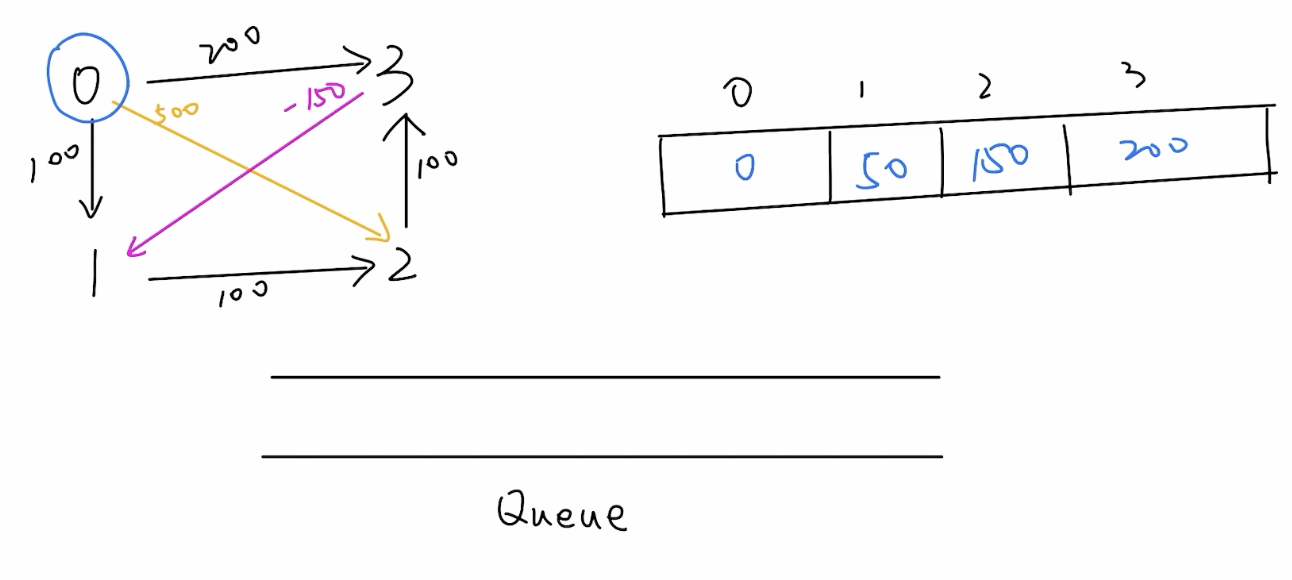 200
0 3
500 -150
100 100
1 2
100
0 1 2 3
0 50 150 200
Queue